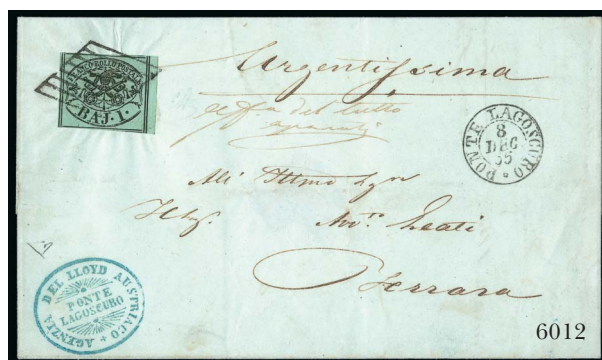 FRANCO BOLLO POSTALE
BAJ. 1.
Urgentissima
PONTE LAGOSCURO
8
DEC
55
del tutto
All' Illmo Sigre
Leati
Ferrara
AGENZIA DEL LLOYD AUSTRIACO
PONTE
LAGOSCURO
6012